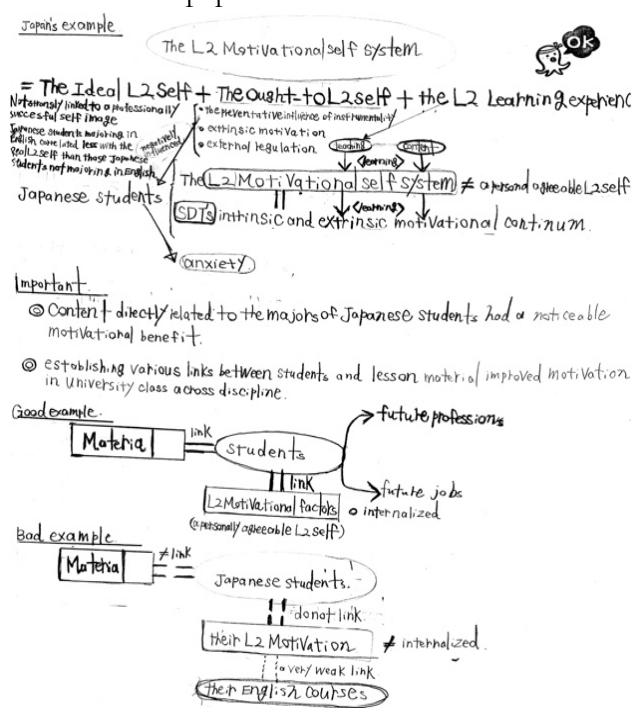 Japan's example
The L2 Motivational self system
OK
= The Ideal L2 Self + The ought-to L2 self + the L2 Learning experienc
Not strongly linked to a professionally
succesful self image
Japanese students majoring in
English correlated less with the
than those Japanese
students not majoring in English
negatively
influenced
• the preventative influence of instrumentality
• extrinsic motivation
• external regulation
teaching
content
<learning>
The L2 Motivational self system ≠ a personal agreeable L2 self
Japanese students
<learning>
SDT's intrinsic and extrinsic motivational continum.
anxiety
Important.
◎ Content directly related to the majors of Japanese students had a noticeable
motivational benefit.
◎ establishing various links between students and lesson material improved motivation
in University class across discipline.
Good example.
future professions
Materia
link
students
link
future jobs
L2 Motivational factors
o internalized
(a personally agreeable L2 self)
Bad example
≠ link
Materia
Japanese students.
do not link
their L2 Motivation
≠ internalized.
a very weak link
their English courses